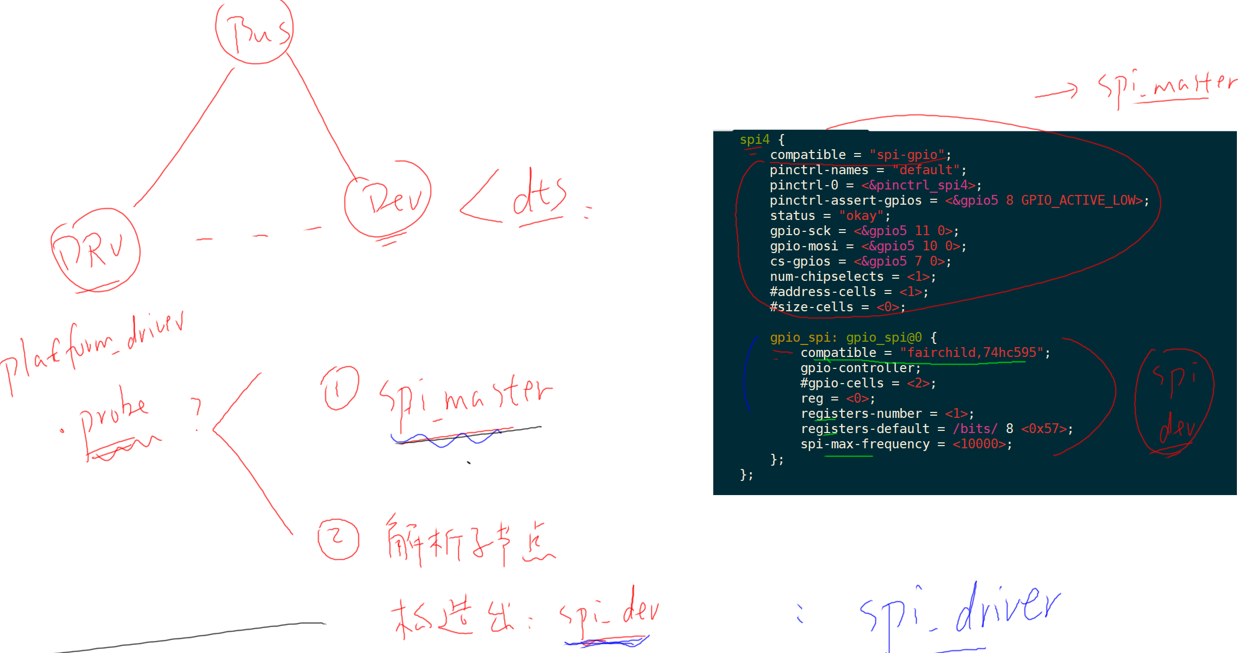 Bus
DRV
Dev
dts :
platform_driver
probe ?
① spi_master
② 解析子节点
构造出: spi_dev
: spi_driver
→ spi_master
spi4 {
compatible = "spi-gpio";
pinctrl-names = "default";
pinctrl-0 = <&pinctrl_spi4>;
pinctrl-assert-gpios = <&gpio5 8 GPIO_ACTIVE_LOW>;
status = "okay";
gpio-sck = <&gpio5 11 0>;
gpio-mosi = <&gpio5 10 0>;
cs-gpios = <&gpio5 7 0>;
num-chipselects = <1>;
#address-cells = <1>;
#size-cells = <0>;
gpio_spi: gpio_spi@0 {
compatible = "fairchild,74hc595";
gpio-controller;
#gpio-cells = <2>;
reg = <0>;
registers-number = <1>;
registers-default = /bits/ 8 <0x57>;
spi-max-frequency = <10000>;
};
};
spi
dev